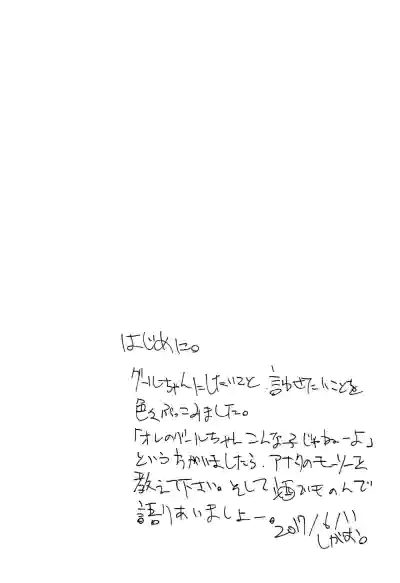 はじめに。
グールちゃんにしたいこと、言わせたいことを
色々ぶっこみました。
「オレのグールちゃんこんな子じゃねーよ」
という方がいましたら、アナタのモーソーを
教えて下さい。そして酒でものんで
語りあいましょー。
2017/6/11